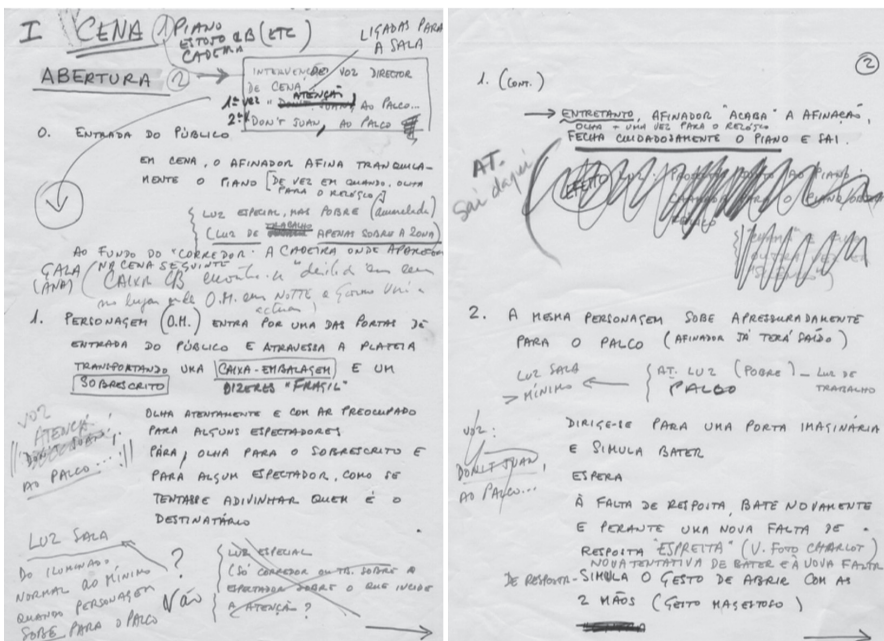 I CENA 1 PIANO
ESTOJO CB (ETC)
CADEIRA
LIGADAS PARA
A SALA
ABERTURA 2
INTERVENÇÃO VOZ DIRECTOR
DE CENA
1ª VEZ "ATENÇÃO, AO PALCO...
2ª DON'T JUAN, AO PALCO
0. ENTRADA DO PÚBLICO
EM CENA, O AFINADOR AFINA TRANQUILA-
MENTE O PIANO [DE VEZ EM QUANDO, OLHA
PARA O RELÓGIO]
LUZ ESPECIAL, MAS POBRE (amarelada)
(LUZ DE TRABALHO APENAS SOBRE A ZONA)
AO FUNDO DO "CORREDOR": A CADEIRA ONDE APARECE
GALA (NA CENA SEGUINTE
(ANA) CAIXA CB
no lugar onde O.M. em NOTTE e Giorno Vai
actuar)
1. PERSONAGEM (O.M.) ENTRA POR UMA DAS PORTAS DE
ENTRADA DO PÚBLICO E ATRAVESSA A PLATEIA
TRANSPORTANDO UMA CAIXA-EMBALAGEM E UM
SOBRESCRITO DIZERES "FRAGIL"
VOZ
ATENÇÃ
AO PALCO...
OLHA ATENTAMENTE E COM AR PREOCUPADO
PARA ALGUNS ESPECTADORES
PÁRA, OLHA PARA O SOBRESCRITO E
PARA ALGUM ESPECTADOR, COMO SE
TENTASSE ADIVINHAR QUEM É O
DESTINATÁRIO
LUZ SALA
DO ILUMINADO
NORMAL AO MÍNIMO
QUANDO PERSONAGEM
SOBE PARA O PALCO
? NÃO
LUZ ESPECIAL
(SÓ CORREDOR OU TB. SOBRE A
ESPECTADOR SOBRE O QUE INCIDE
A ATENÇÃO?
2
1. (CONT.)
ENTRETANTO, AFINADOR "ACABA" A AFINAÇÃO,
OLHA + UMA VEZ PARA O RELÓGIO
FECHA CUIDADOSAMENTE O PIANO E SAI.
AT.
Sai daqui
EFEITO LUZ: PIANO:
PARA O PIANO
PALCO
2. A MESMA PERSONAGEM SOBE APRESSURADAMENTE
PARA O PALCO (AFINADOR JÁ TERÁ SAÍDO)
LUZ SALA
> MÍNIMO
AT. LUZ (POBRE) - LUZ DE
PALCO TRABALHO
VOZ:
DON'T JUAN,
AO PALCO...
DIRIGE-SE PARA UMA PORTA IMAGINÁRIA
E SIMULA BATER
ESPERA
À FALTA DE RESPOSTA, BATE NOVAMENTE
E PERANTE UMA NOVA FALTA DE
RESPOSTA "ESPREITA" (V. FOTO CHARLOT)
NOVA TENTATIVA DE BATER E À NOVA FALTA
DE RESPOSTA - SIMULA O GESTO DE ABRIR COM AS
2 MÃOS (GESTO MAGESTOSO)